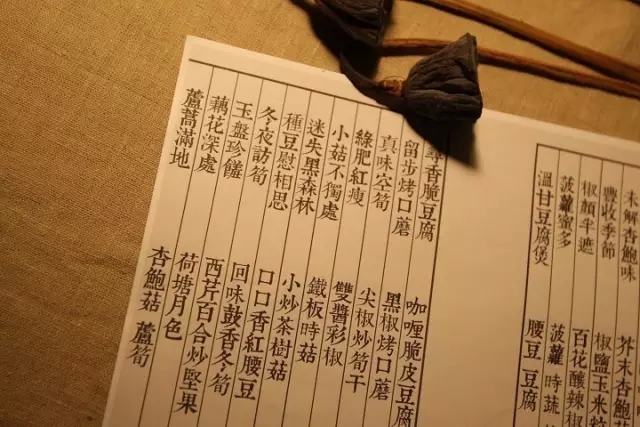 未解杏鮑味 芥末杏鮑
豐收季節 椒鹽玉米粒
椒顏半遮 百花釀辣椒
菠蘿蜜多 菠蘿 時蔬
溫甘豆腐煲 腰豆 豆腐
尋香脆豆腐 咖喱脆皮豆腐
留步烤口蘑 黑椒烤口蘑
真味空筍 尖椒炒筍干
綠肥紅瘦 雙醬彩椒
小菇不獨處 鐵板時菇
迷失黑森林 小炒茶樹菇
種豆慰相思 口口香紅腰豆
冬夜訪筍 回味鼓香冬筍
玉盤珍饈 西芹百合炒堅果
藕花深處 荷塘月色
蘆蒿滿地 杏鮑菇 蘆筍